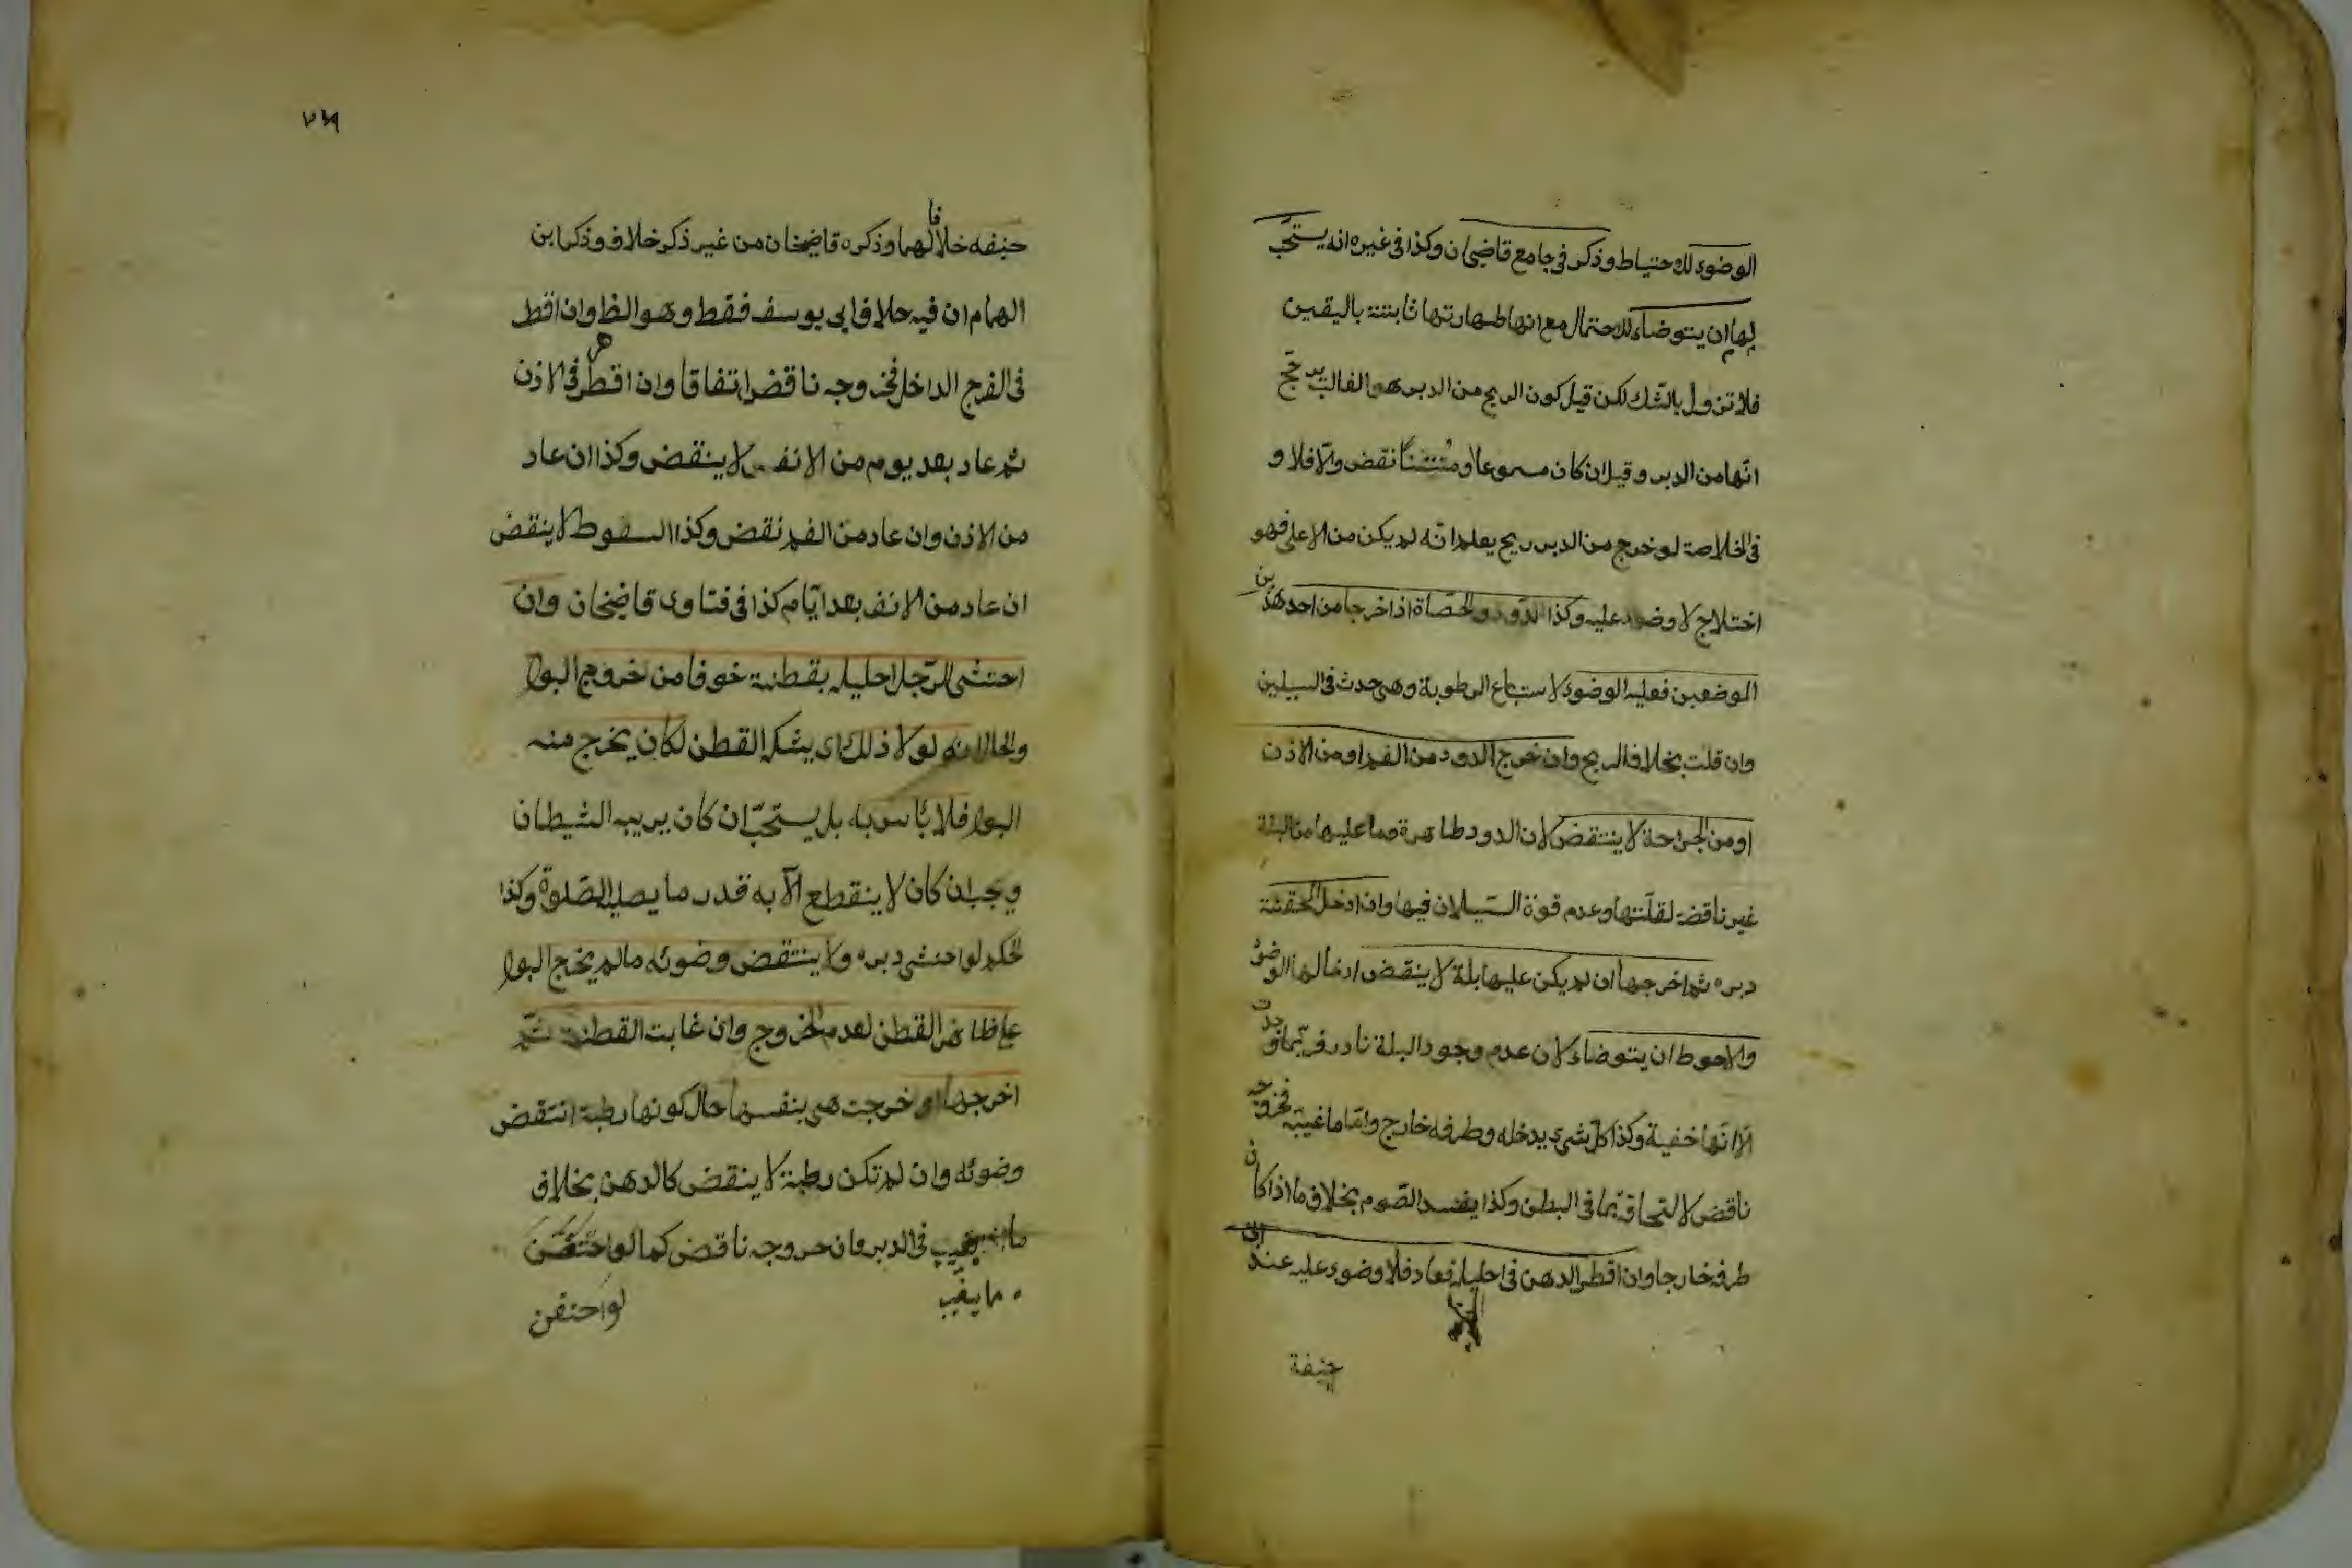 الوضوء للاحتياط وذكر في جامع قاضيخان وكذا في غيره انه يستحب
لها ان يتوضاء للاحتمال مع انها طهارتها ثابتة باليقين
فلا تزول بالشك لكن قيل كون الريح من الدبر هو الغالب يرجح
انها من الدبر وقيل ان كان مسموعا او منتنا نقض والا فلا و
في الخلاصة لو خرج من الدبر ريح يعلم انه لم يكن من الاعلى فهو
اختلاج لا وضوء عليه وكذا الدود والحصاة اذا خرجا من احد هذين
الموضعين فعليه الوضوء لاستتباع الرطوبة وهي حدث في السبيلين
وان قلت بخلاف الريح وان خرج الدود من الفم او من الاذن
او من الجراحة لا ينتقض لان الدود طاهرة وما عليها من البلة
غير ناقضة لقلتها وعدم قوة السيلان فيها وان ادخل الحقنة
دبره ثم اخرجها ان لم يكن عليها بلة لا ينقض ادخالها الوضوء
والاحوط ان يتوضاء لان عدم وجود البلة نادر فربما وجدت
الا انها خفية وكذا كل شيء يدخله وطرفه خارج واما ما غيبه فخروجه
ناقض لالتحاقه بما في البطن وكذا يفسد الصوم بخلاف ما اذا كان
طرفه خارجا وان اقطر الدهن في احليله فعاد فلا وضوء عليه عند ابي
حنيفة
٧٦
حنيفه خلافا لهما وذكره قاضيخان من غير ذكر خلاف وذكر ابن
الهمام ان فيه خلاف ابي يوسف فقط وهو الظ وان اقطر
في الفرج الداخل فخروجه ناقض اتفاقا وان اقطر في الاذن
ثم عاد بعد يوم من الانف لا ينقض وكذا ان عاد
من الاذن وان عاد من الفم نقض وكذا السعوط لا ينقض
ان عاد من الانف بعد ايام كذا في فتاوى قاضيخان وان
احتشى الرجل احليله بقطنة خوفا من خروج البول
والحال انه لولا ذلك اي القطن لكان يخرج منه
البول فلا باس به بل يستحب ان كان يريبه الشيطان
ويجب ان كان لا ينقطع الا به قدر ما يصلي الصلوة وكذا
الحكم لو احتشى دبره ولا ينتقض وضوئه ما لم يخرج البول
على ظاهر القطن لعدم الخروج وان غابت القطنة ثم
اخرجها او خرجت هي بنفسها حال كونها رطبة انتقض
وضوئه وان لم تكن رطبة لا ينقض كالدهن بخلاف
ما يغيب في الدبر فان خروجه ناقض كما لو احتقن
ما يغيب لو احتقن